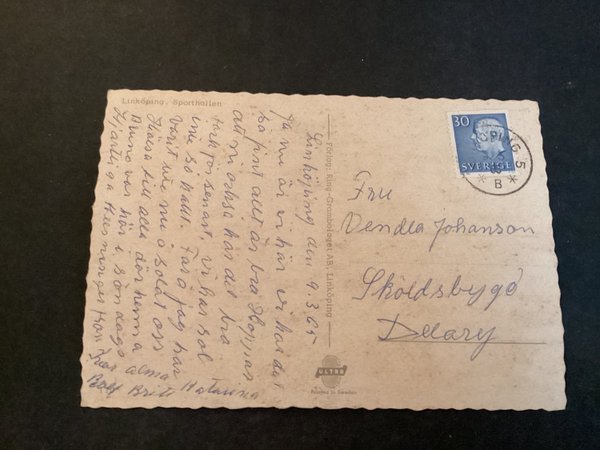 Linköping. Sporthallen
Linköping den 9.3.65
Ja nu är vi här vi har det
så fint allt är bra Hoppas
att ni också har det bra
tack för senast, vi har sol
inte så kallt Far å jag har
varit ute nu å solat oss
Hälsa till alla där hemma
Bruno var här i söndags
Hjärtliga Hälsningar från
Far alma Katarina
Rolf Britt
Förlag: Ring-Grambolaget AB, Linköping
ULTRA
Printed in Sweden
30
SVERIGE
PING 5
B
Fru
Vendla Johanson
Sköldsbygd
Delary